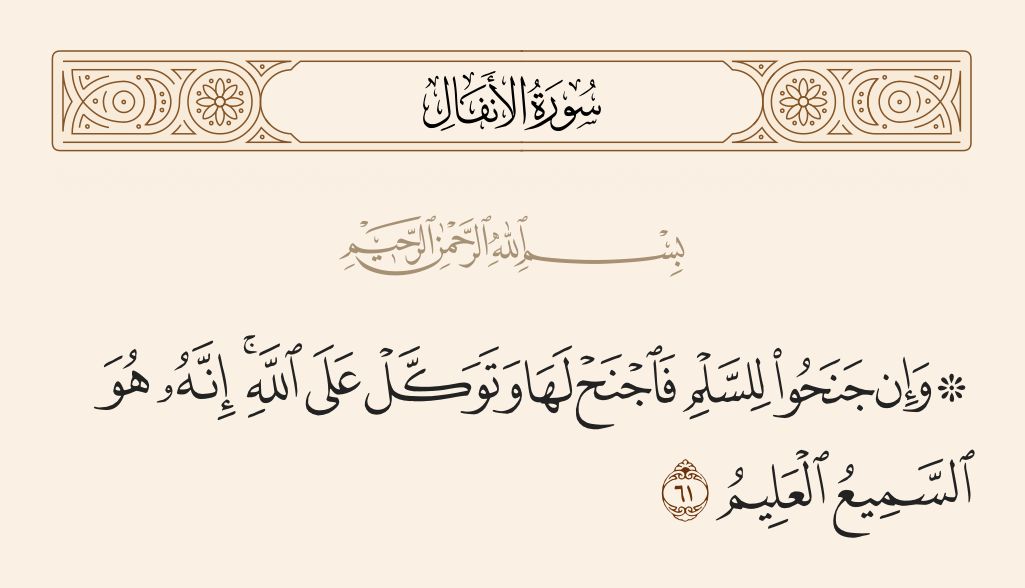 سُورَةُ الأَنفَالِ
بِسْمِ ٱللَّهِ ٱلرَّحْمَٰنِ ٱلرَّحِيمِ
۞ وَإِن جَنَحُوا۟ لِلسَّلْمِ فَٱجْنَحْ لَهَا وَتَوَكَّلْ عَلَى ٱللَّهِ ۚ إِنَّهُۥ هُوَ
ٱلسَّمِيعُ ٱلْعَلِيمُ ٦١